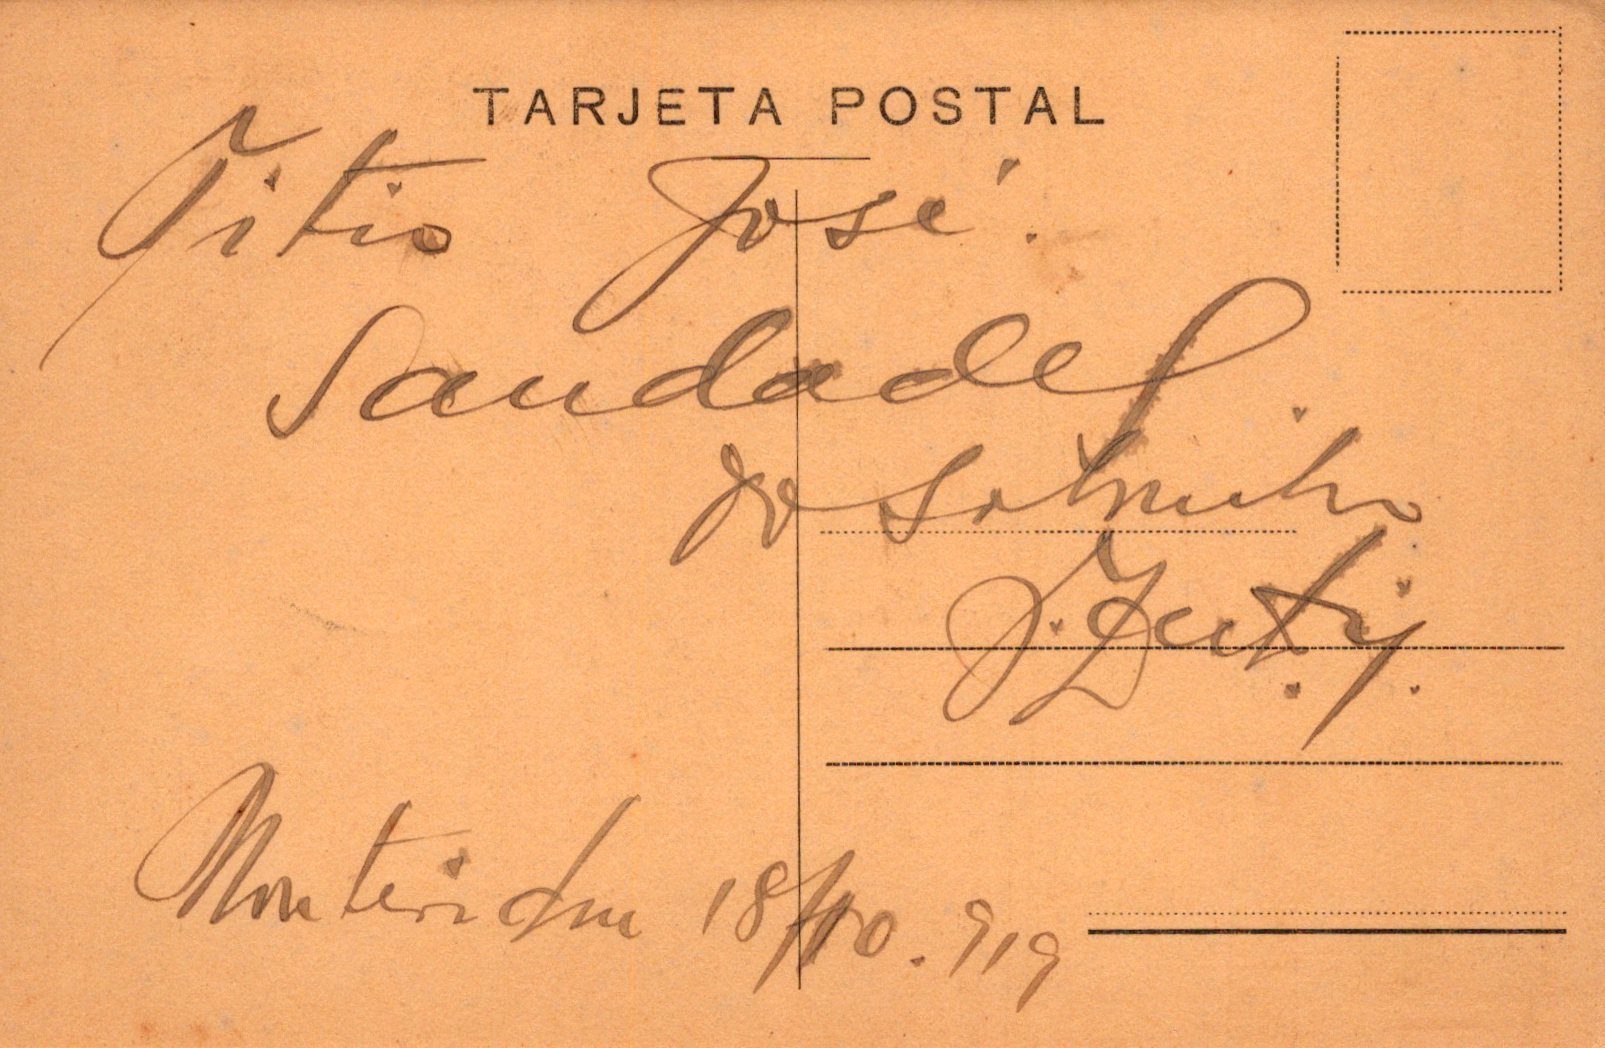 TARJETA POSTAL
Titio José.
Saudades
do sobrinho
J.
Montevideu 18/10.919